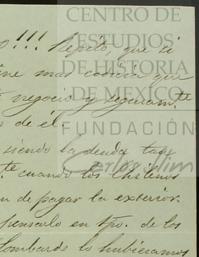 CENTRO DE
ESTUDIOS
DE HISTORIA
DE MÉXICO
FUNDACIÓN
Carlos Slim
!!! Repito, que si
mas
negocio y seguram.te
de él.
siendo la deuda tan
te. cuando los chilenos
de pagar la exterior.
pensarlo en tpo. de los
lombardo lo hubieramos